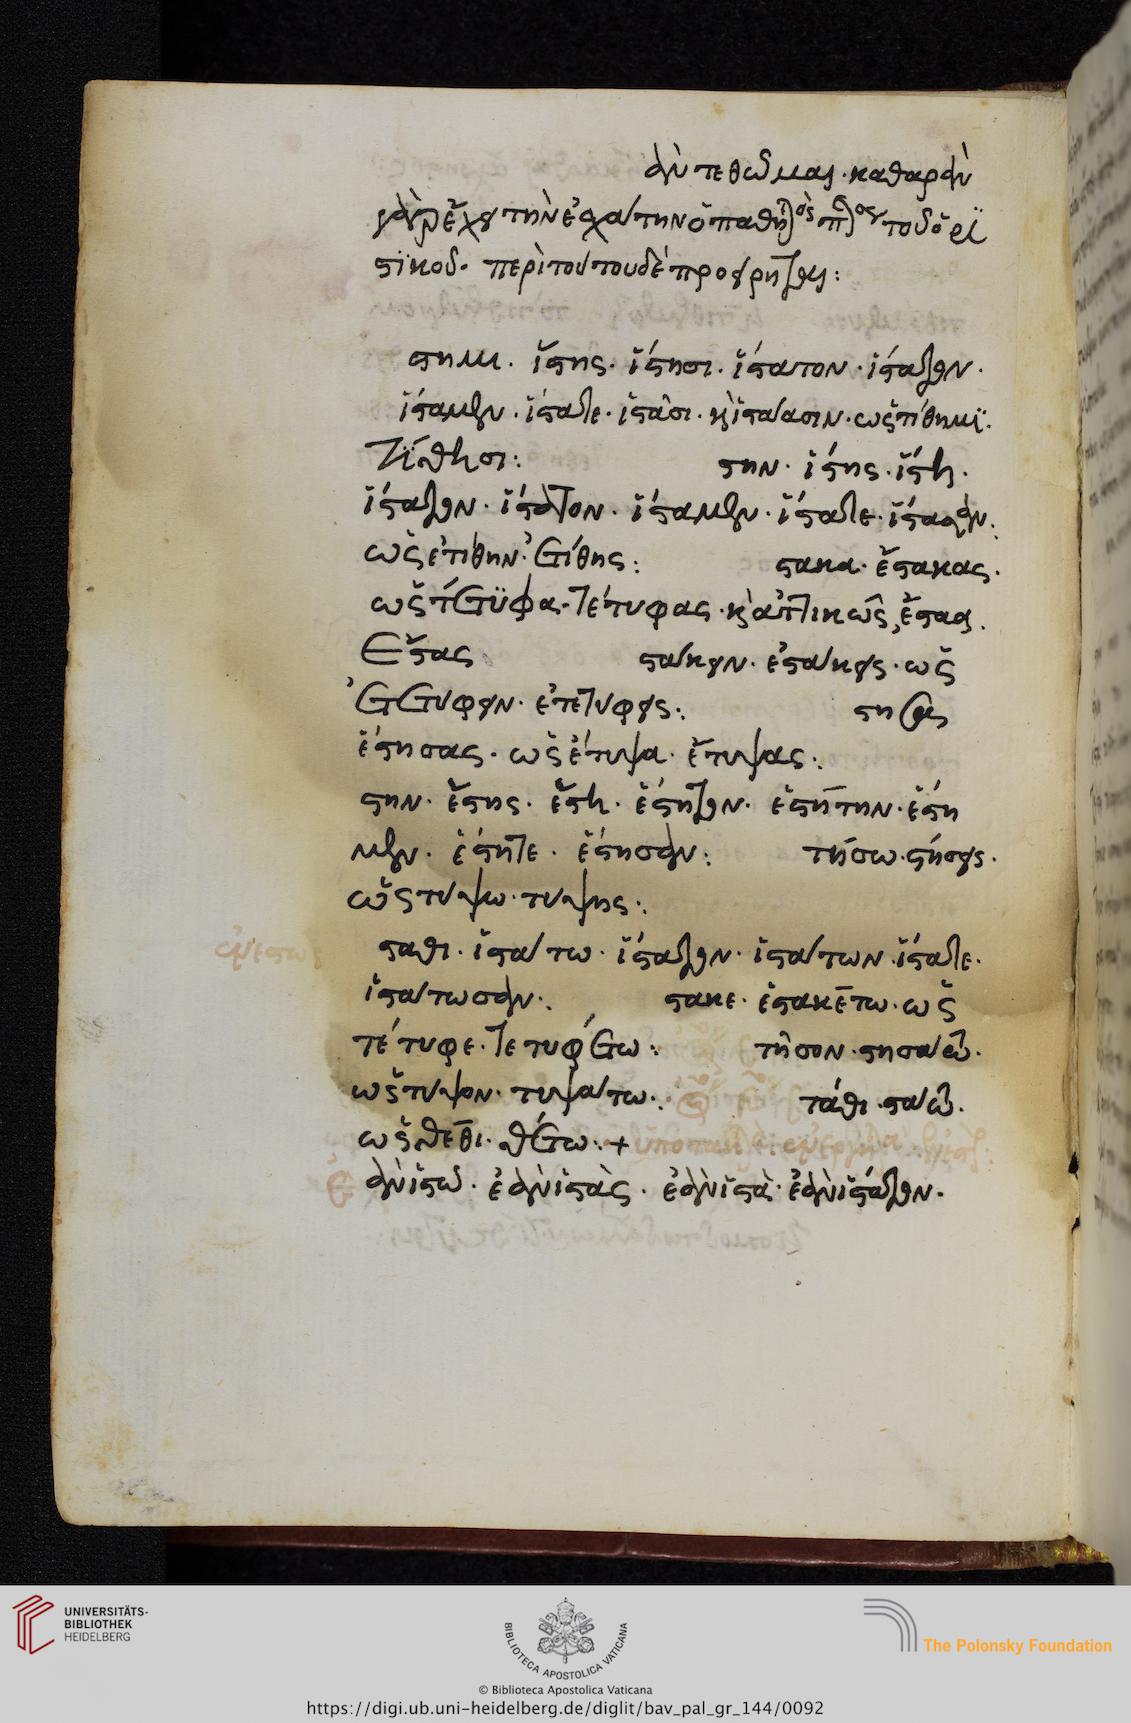 ὰν τεθῶμαι· καθαρὰν
γὰρ ἔχει τὴν ἐσχάτην ὁ παθητικὸς
στικοῦ· περὶ τούτου δὲ προείρηται:
στημι· ἵστης· ἵστησι· ἵστατον· ἵστατον·
ἵσταμεν· ἵστατε· ἱστᾶσι· κ ἱστάασιν· ὡς τίθημι·
τίθησι: στην· ἵστης· ἵστη·
ἵστατον· ἱστάτην· ἵσταμεν· ἵστατε· ἵστασαν:
ὡς ἐτίθην· ἐτίθης: στακα· ἕστακας·
ὡς τέτυφα· τέτυφας· κ ἀττικῶς, ἕσταα·
ἕστας στάκειν· ἑστάκεις· ὡς
ἐτετύφειν· ἐτετύφεις: στησα
ἔστησας· ὡς ἔτυψα· ἔτυψας:
στην· ἔστης· ἔστη· ἔστητον· ἐστήτην· ἔστη
μεν· ἔστητε· ἔστησαν: τήσω· στήσεις·
ὡς τύψω· τύψεις:
σταθι· ἱστάτω· ἵστατον· ἱστάτων· ἵστατε·
ἱστάτωσαν: στακε· ἑστακέτω· ὡς
τέτυφε· τετυφέτω: τῆσον· στησάτω·
ὡς τύψον· τυψάτω: τάθι· στάτω·
ὡς θέθι· θέτω: +
Ἐὰν ἱστῶ· ἐὰν ἱστᾶς· ἐὰν ἱστᾶ· ἐὰν ἱστάτον·
UNIVERSITÄTS-
BIBLIOTHEK
HEIDELBERG
BIBLIOTECA APOSTOLICA VATICANA
The Polonsky Foundation
© Biblioteca Apostolica Vaticana
https://digi.ub.uni-heidelberg.de/diglit/bav_pal_gr_144/0092